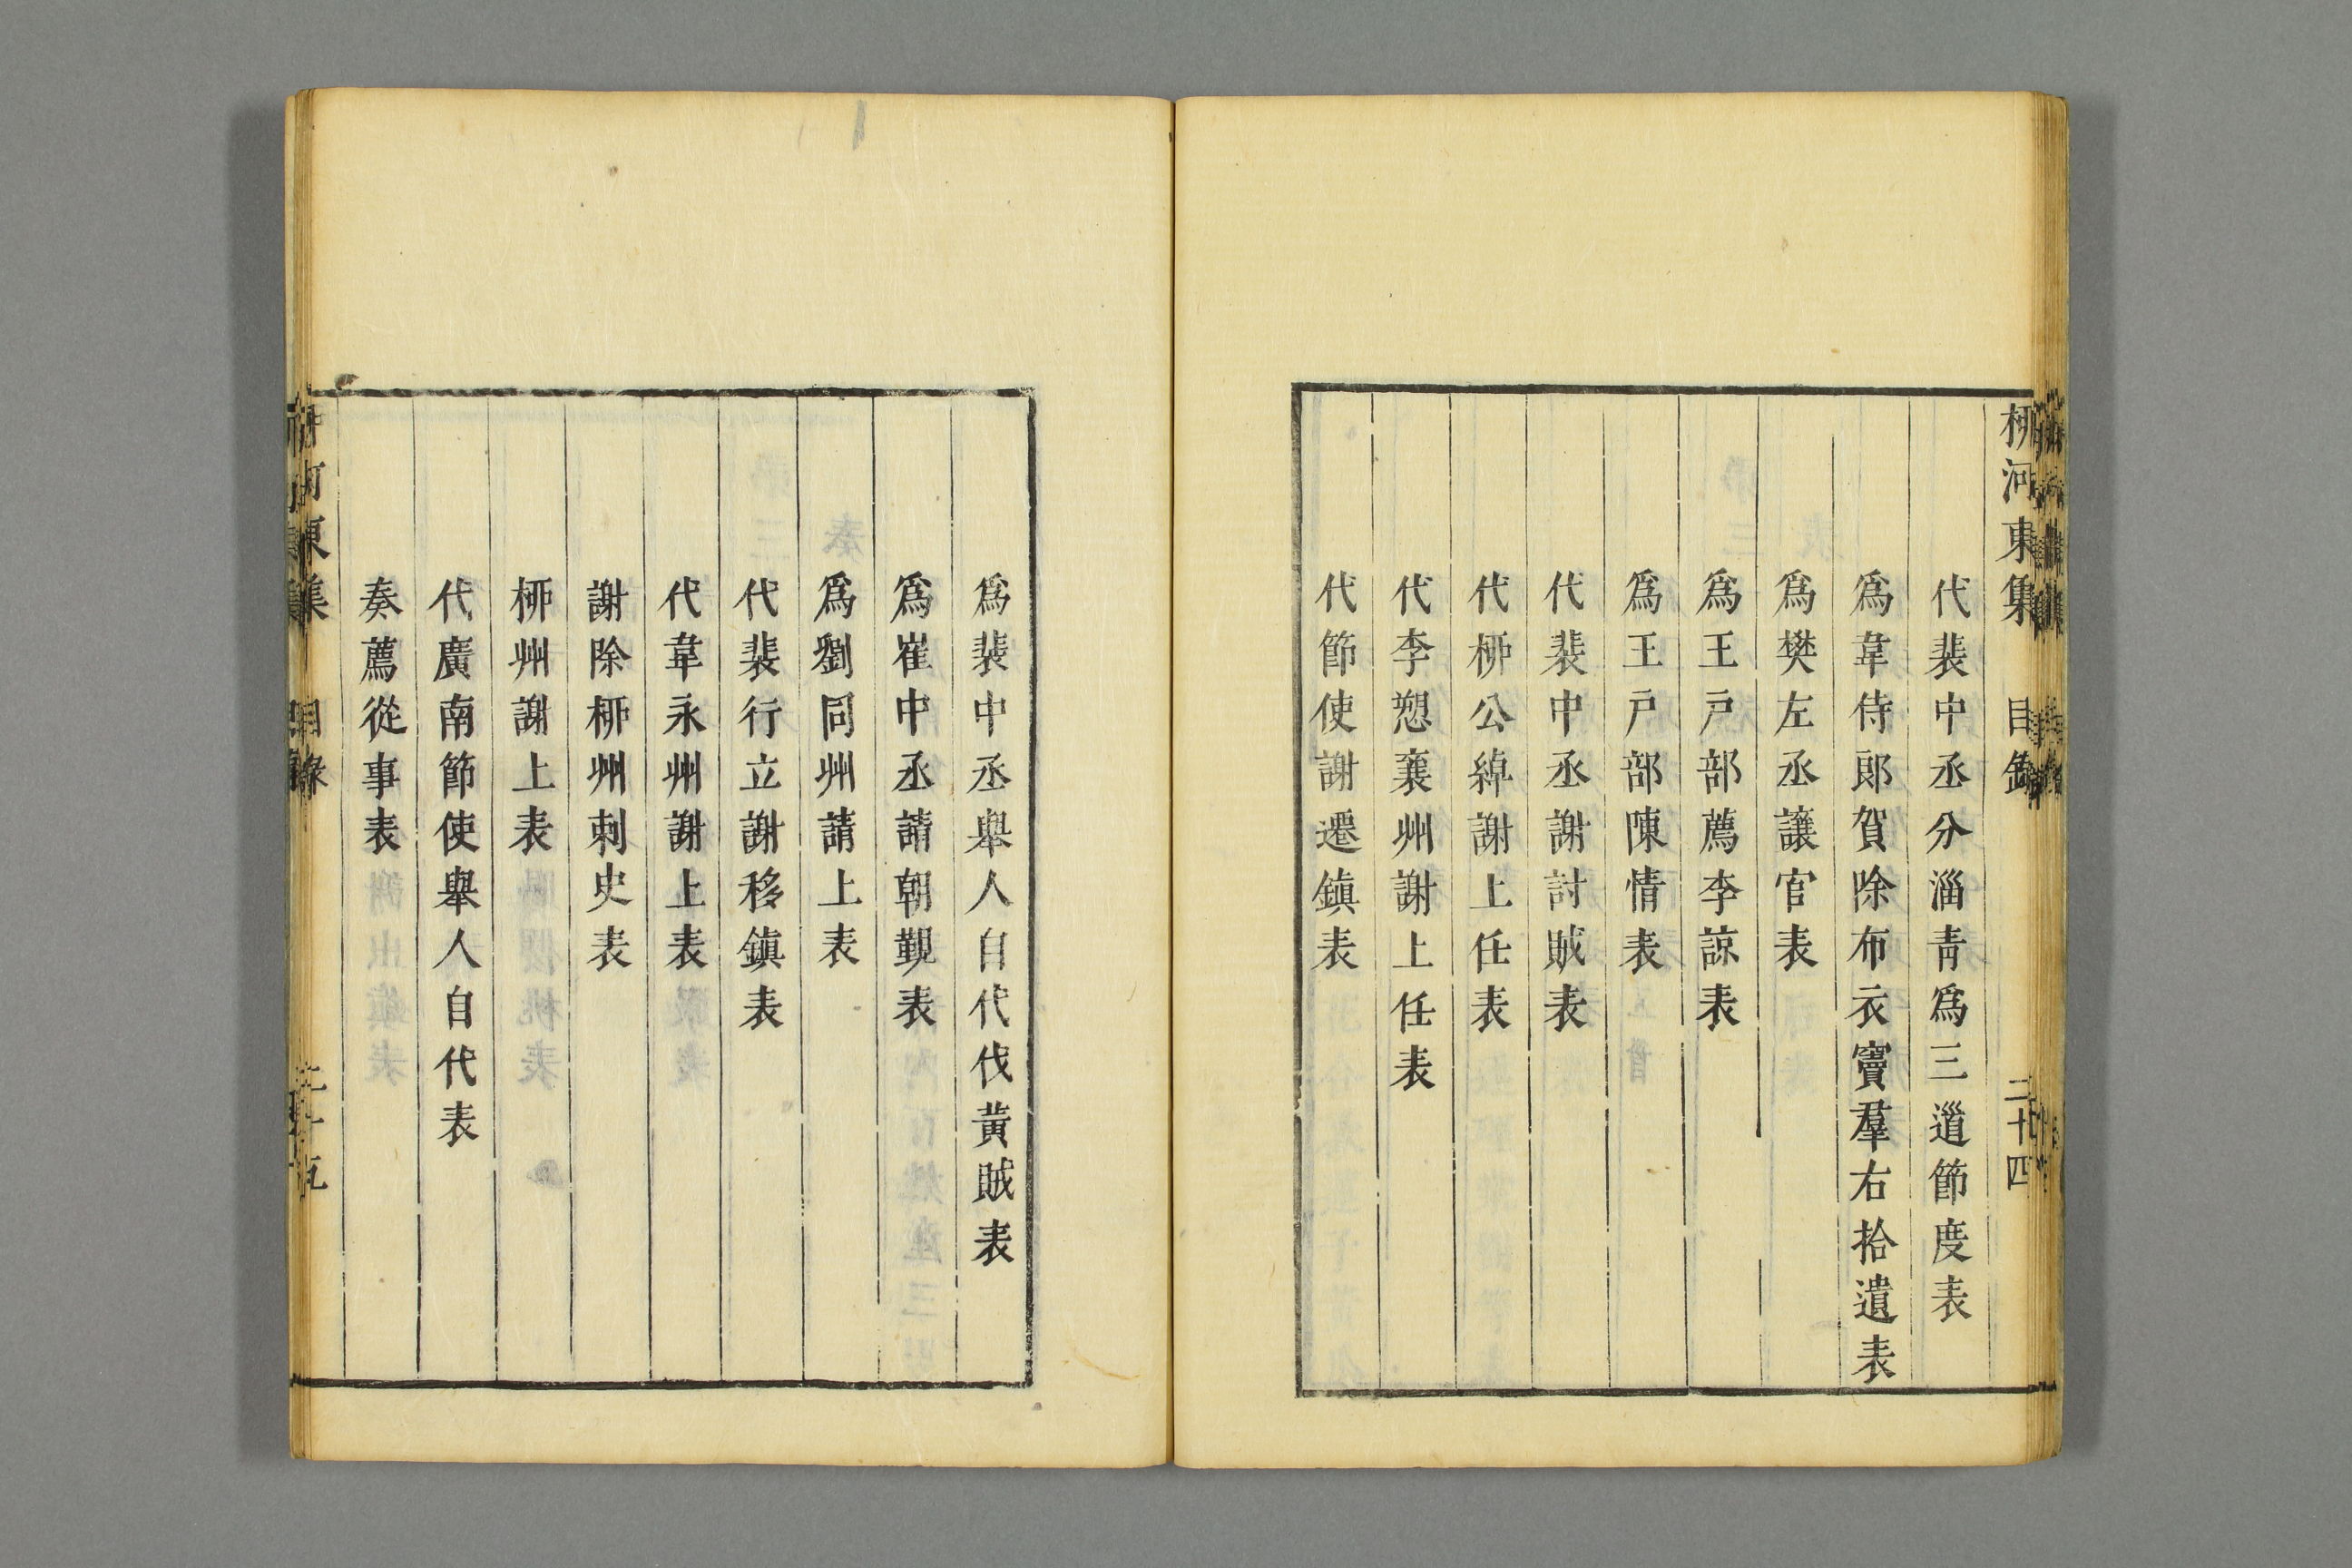 柳河東集 目錄 二十四
代裴中丞分淄靑爲三道節度表
爲韋侍郎賀除布衣竇羣右拾遺表
爲樊左丞讓官表
爲王戸部薦李諒表
爲王戸部陳情表
代裴中丞謝討賊表
代柳公綽謝上任表
代李愬襄州謝上任表
代節使謝遷鎮表
爲裴中丞舉人自代伐黃賊表
爲崔中丞請朝覲表
爲劉同州請上表
代裴行立謝移鎮表
代韋永州謝上表
謝除柳州刺史表
柳州謝上表
代廣南節使舉人自代表
奏薦從事表
河東集 目錄